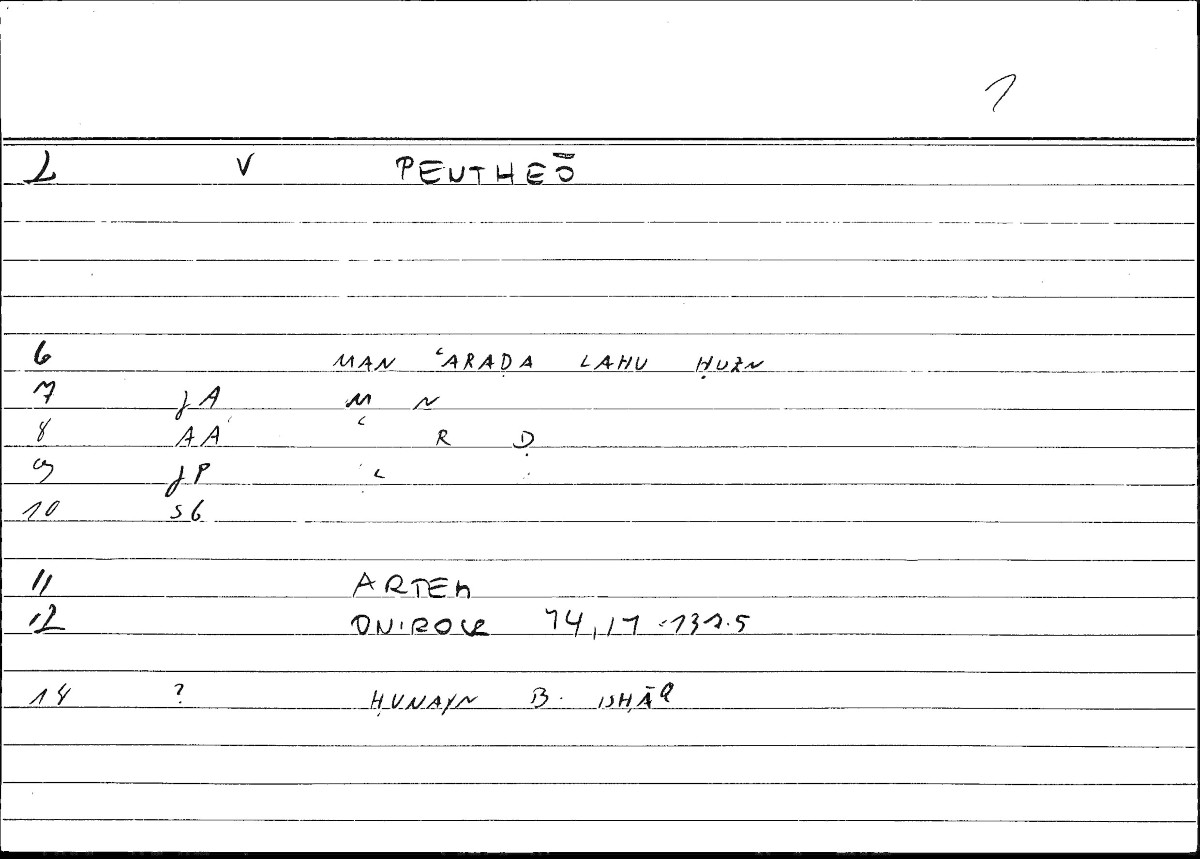 1
2 V PENTHEŌ
6 MAN ʿARAḌA LAHU ḤUZN
7 JA M N
8 AA ʿ R Ḍ
9 JP
10 SG
11 ARTEM
12 ONIROCR 14,17 :131.5
14 ? ḤUNAYN B. ISḤĀQ